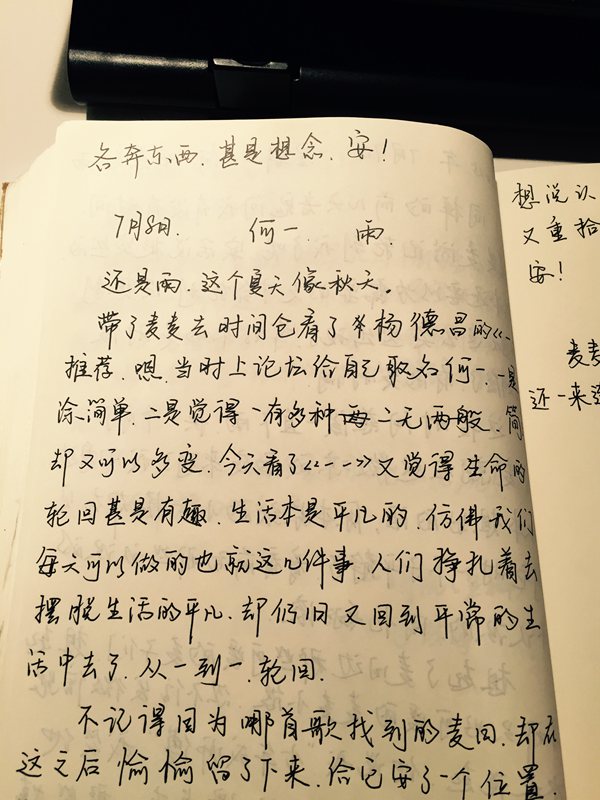 各奔东西、甚是想念、安!
7月8日. 何一. 雨.
还是雨、这个夏天像秋天。
带了麦麦去时间仓看了杨德昌的《一
推荐、嗯、当时上论坛给自己取名何一、一是
涂简单、二是觉得一有多种 二无两般、简
却又可以多变、今天看了《一一》又觉得生命的
轮回甚是有趣、生活本是平凡的、仿佛我们
每天可以做的也就这几件事、人们挣扎着去
摆脱生活的平凡、却仍旧又回到平常的生
活中去了、从一到一、轮回.
不记得因为哪首歌找到的麦田、却在
这之后愉愉留了下来、给它安了一个位置、
想说认
又重拾
安!
麦麦
还一来